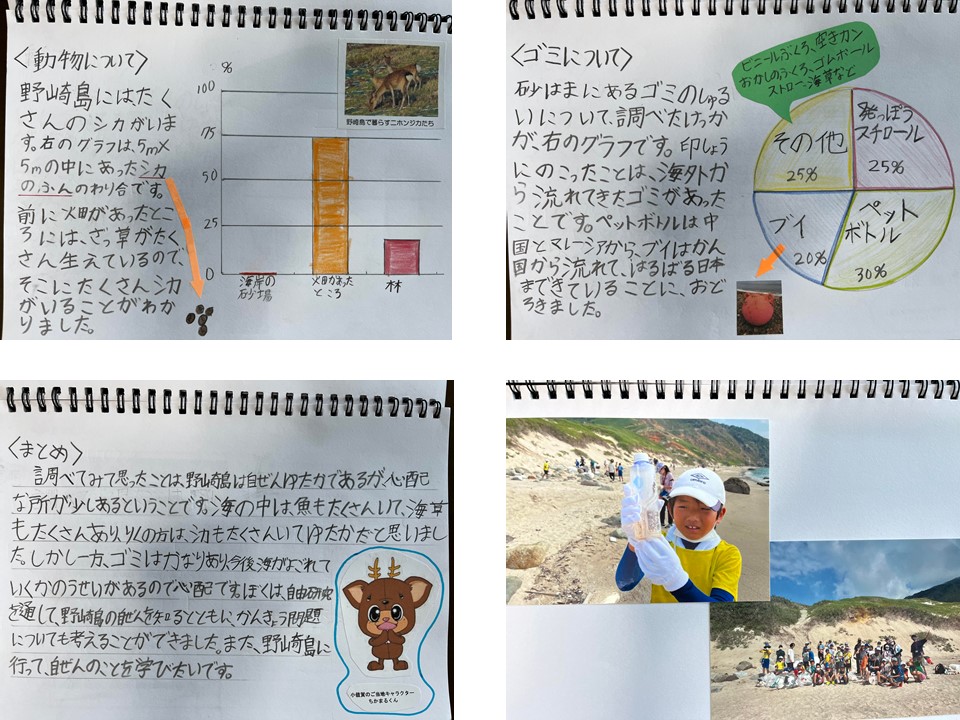 〈動物について〉
野崎島にはたく
さんのシカがいま
す。右のグラフは、5m×
5mの中にあったシカ
のふんのわり合です。
前に畑があったとこ
ろには、ざっ草がたく
さん生えているので、
そこにたくさんシカ
がいることがわか
りました。
%
100
75
50
25
0
海岸の
砂場
畑があった
ところ
林
野崎島で暮らすニホンジカたち
〈ゴミについて〉
砂はまにあるゴミのしゅる
いについて、調べたけっか
が、右のグラフです。印しょう
にのこったことは、海外か
ら流れてきたゴミがあった
ことです。ペットボトルは中
国とマレーシアから、ブイはかん
国から流れて、はるばる日本
まできていることに、おど
ろきました。
ビニールぶくろ、空きカン
おかしのふくろ、ゴムボール
ストロー、海草など
その他
25%
発っぽう
スチロール
25%
ブイ
20%
ペット
ボトル
30%
〈まとめ〉
調べてみて思ったことは、野崎島は自ぜんゆたかであるが、心配
な所が少しあるということです。海の中は魚もたくさんいて、海草
もたくさんあり、りくの方は、シカもたくさんいてゆたかだと思いまし
た。しかし一方、ゴミはかなりあり、今後、海がよごれて
いくかのうせいがあるので心配です。ぼくは、自由研究
を通して、野崎島の自ぜんを知るとともに、かんきょう問題
についても考えることができました。また、野崎島に
行って、自ぜんのことを学びたいです。
小値賀のご当地キャラクター
ちかまるくん